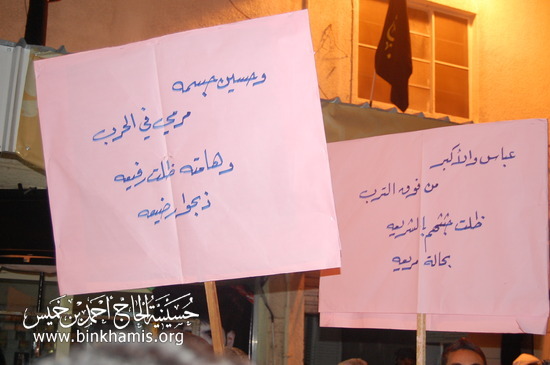 وحسين جسمه
مرمي في الحرب
وهامته ظلت رفيعه
ذبحوا رضيعه
عباس والأكبر
من فوق الترب
ظلت جثثهم بالشريعه
بحالة مريعه
حسينية الحاج احمد بن خميس
www.binkhamis.org